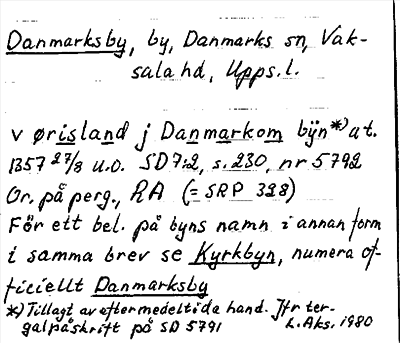 Danmarksby, by, Danmarks sn, Vak-
sala hd, Upps. l.
v ørisland j Danmarkom bÿn*) at.
1357 27/8 u.o. SD 7:2, s. 230, nr 5792
Or. på perg., RA (= SRP 328)
För ett bel. på byns namn i annan form
i samma brev se Kyrkbyn, numera of-
ficiellt Danmarksby
*) Tillagt av eftermedeltida hand. Jfr ter-
galpåskrift på SD 5791 L. Aks. 1980